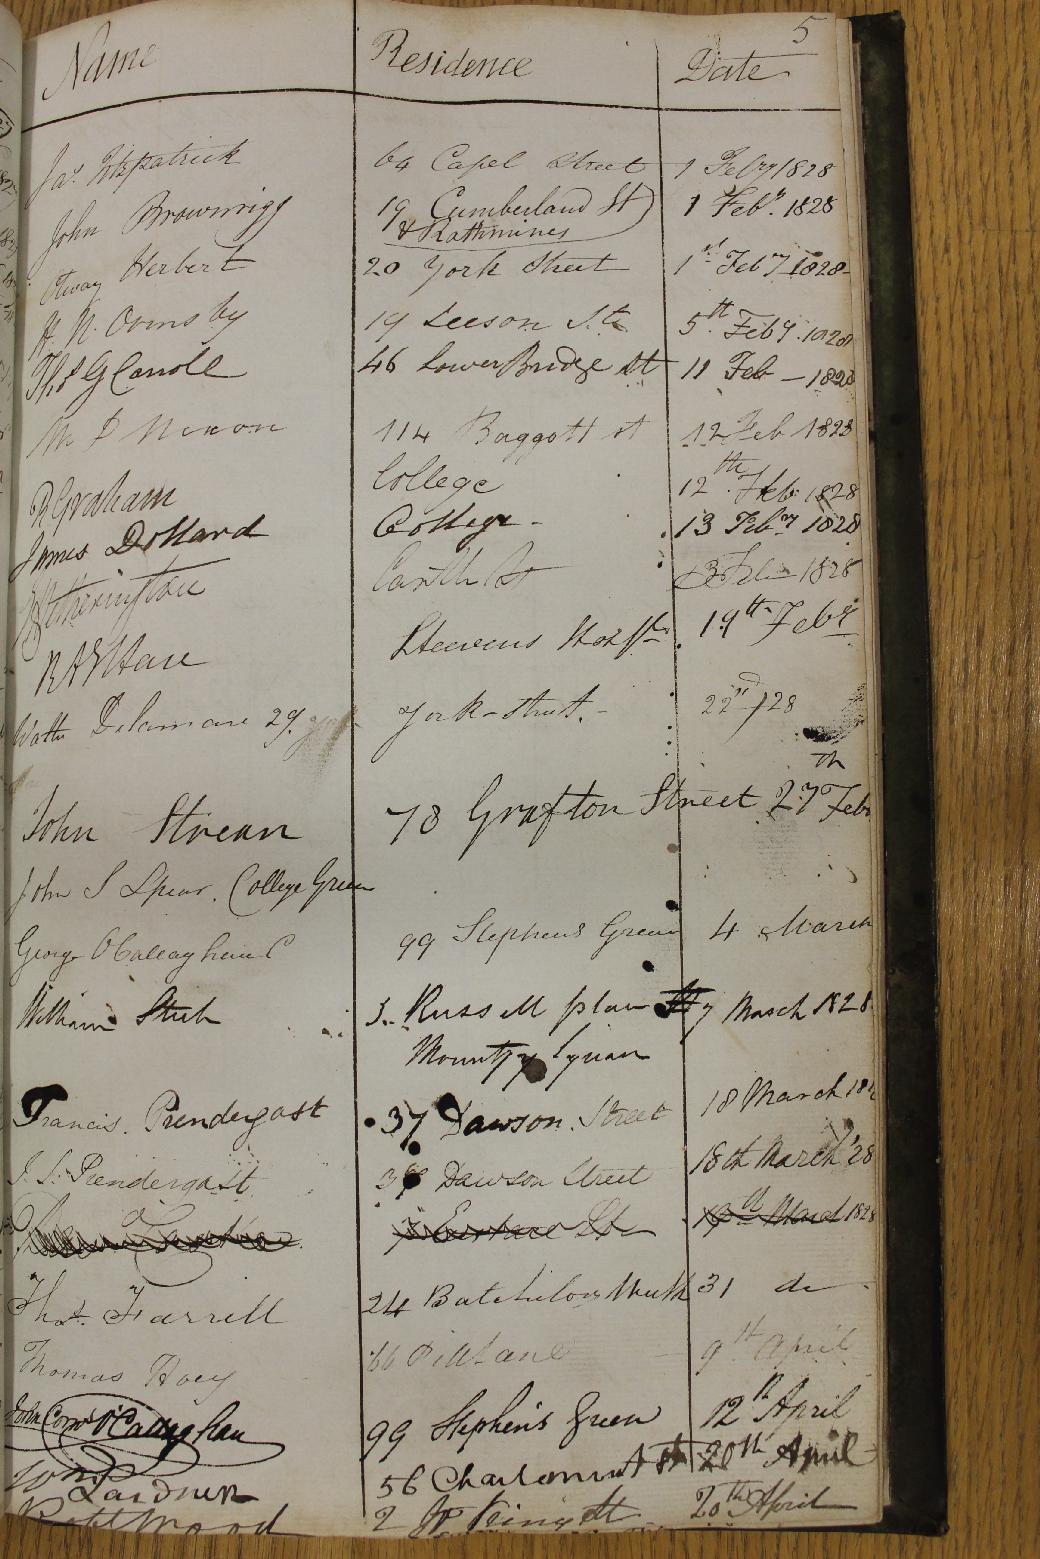 5
Name Residence Date
Jas. Fitzpatrick 64 Capel Street 1 Feby 1828
John Brownrigg 19 Cumberland St 1 Feby. 1828
& Rathmines
Otway Herbert 20 York Street 1st Feby 1828
H. N. Ormsby 19 Leeson St. 5th Feby. 1828
Ths G Carroll 46 Lower Bridge St 11 Feb - 1828
M D Nixon 114 Baggott st 12 Feb 1828
R Graham College 12th Feb 1828
James Dollard College - 13 Feby 1828
Hetherington Castle St 13 Feb 1828
Stevens Hospl 19th Feby
Walter Delamare 29. York York-Street. - 22nd /28
John Strean 78 Grafton Street 27th Feb
John S Spear. College Green
George O'Callaghan 99 Stephens Green 4 March
William 3. Russell place 7 March 1828
Mountjoy Square
Francis. Prendergast 37 Dawson. Street 18 March 182
J. S. Prendergast 37 Dawson Street 18th March '28
Eustace St March 1828
Thos. Farrell 24 Batchelors Walk 31 do
Thomas Hoey 66 Pill Lane 9th April
John Corns. O'Callaghan 99 Stephen's Green 12th April
Lardner 56 Charlemont St 20th April
Robt Wood 2 King St 20th April